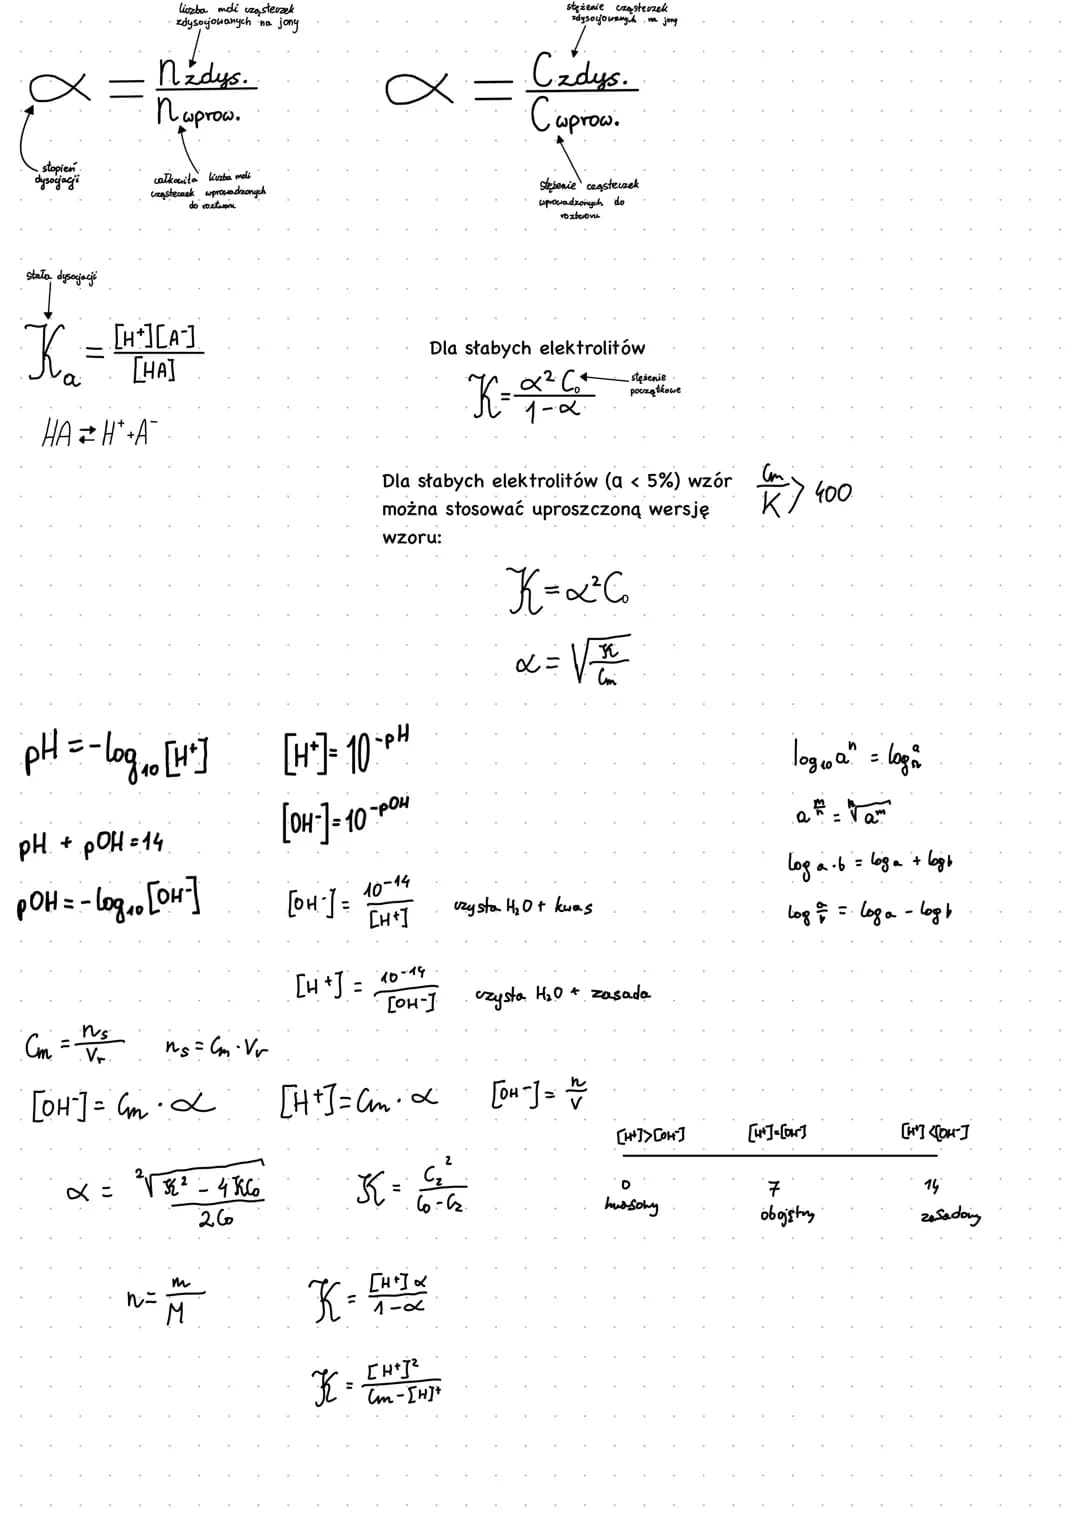 liczba moli cząsteczek
zdysocjowanych na jony
α = nzdys. / nwprow.
stopień
dysocjacji
całkowita liczba moli
cząsteczek wprowadzonych
do roztworu
stężenie cząsteczek
zdysocjowanych na jony
α = Czdys. / Cwprow.
stężenie cząsteczek
wprowadzonych do
roztworu
stała dysocjacji
Ka = [H⁺][A⁻] / [HA]
HA ⇄ H⁺+A⁻
Dla słabych elektrolitów
K = α² C₀ / 1-α
stężenie
początkowe
Dla słabych elektrolitów (α < 5%) wzór
można stosować uproszczoną wersję
wzoru:
Cm / K > 400
K = α²C₀
α = √(K / Cm)
pH = -log₁₀ [H⁺]
[H⁺] = 10^-pH
[OH⁻] = 10^-pOH
pH + pOH = 14
pOH = -log₁₀ [OH⁻]
[OH⁻] = 10⁻¹⁴ / [H⁺] czysta H₂O + kwas
[H⁺] = 10⁻¹⁴ / [OH⁻] czysta H₂O + zasada
log₁₀ aⁿ = log
a^(m/n) = ⁿ√aᵐ
log a·b = log a + log b
log a/b = log a - log b
Cm = ns / Vr
ns = Cm · Vr
[OH⁻] = Cm · α
[H⁺] = Cm · α
[OH⁻] = n / V
[H⁺]>[OH⁻] [H⁺]=[OH⁻] [H⁺]<[OH⁻]
0 7 14
kwasowy obojętny zasadowy
α = ²√K² - 4KC₀ / 2C₀
K = Cz² / C₀-Cz
n = m / M
K = [H⁺]α / 1-α
K = [H⁺]² / Cm-[H]⁺